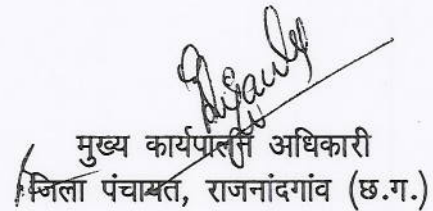 मुख्य कार्यपालन अधिकारी
जिला पंचायत, राजनांदगांव (छ.ग.)